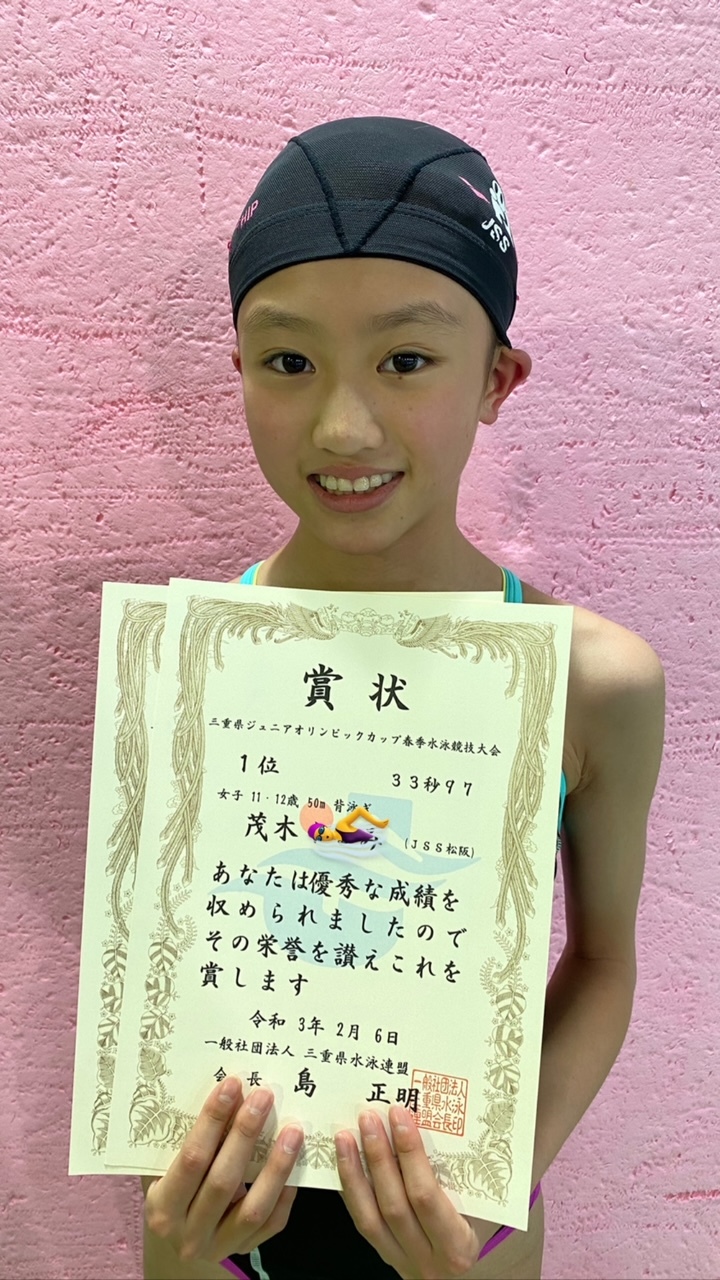 HIP
JSS
賞状
三重県ジュニアオリンピックカップ春季水泳競技大会
1位 33秒97
女子 11・12歳 50m 背泳ぎ
茂木 (JSS松阪)
あなたは優秀な成績を
収められましたので
その栄誉を讃えこれを
賞します
令和 3年 2月 6日
一般社団法人 三重県水泳連盟
会長 島 正明
一般社団法人
三重県水泳
連盟会長印